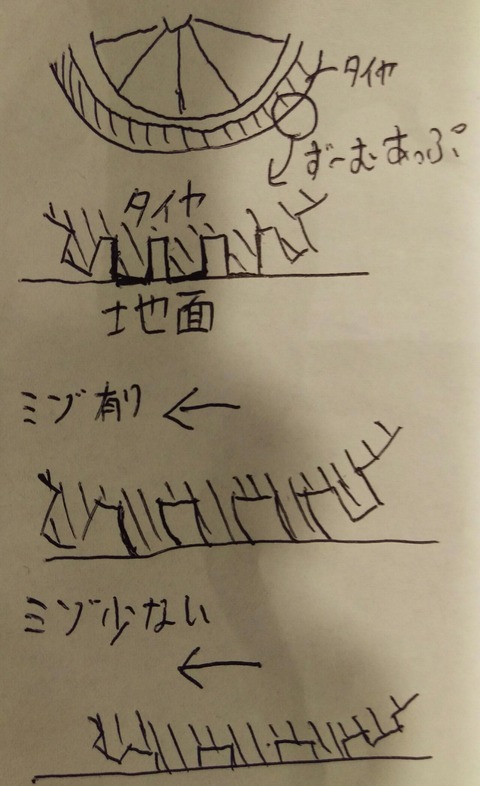 タイヤ
ずーむあっぷ
タイヤ
地面
ミゾ有り
ミゾ少ない